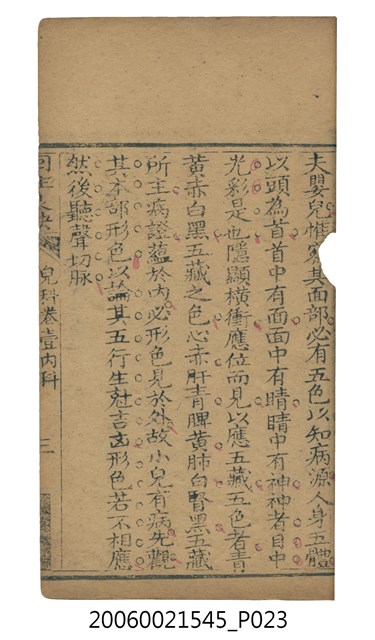 夫嬰兒惟察其面部必有五色以知病源人身五體
以頭為首首中有面面中有睛睛中有神神者目中
光彩是也隱顯橫衝應位而見以應五藏五色者青
黃赤白黑五藏之色心赤肝青脾黃肺白腎黑五藏
所主病證蘊於內必形色見於外故小兒有病先觀
其本部形色以論其五行生尅吉凶形色若不相應
然後聽聲切脉
兒科卷壹內科
三
20060021545_P023